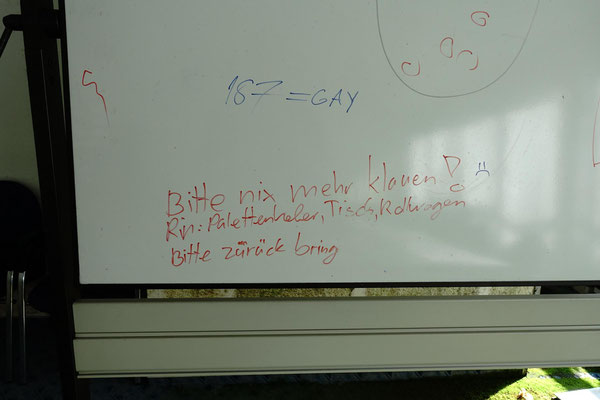 187 = GAY
Bitte nix mehr klauen!
Rip: Palettenheber, Tisch, Rollwagen
Bitte zürück bring